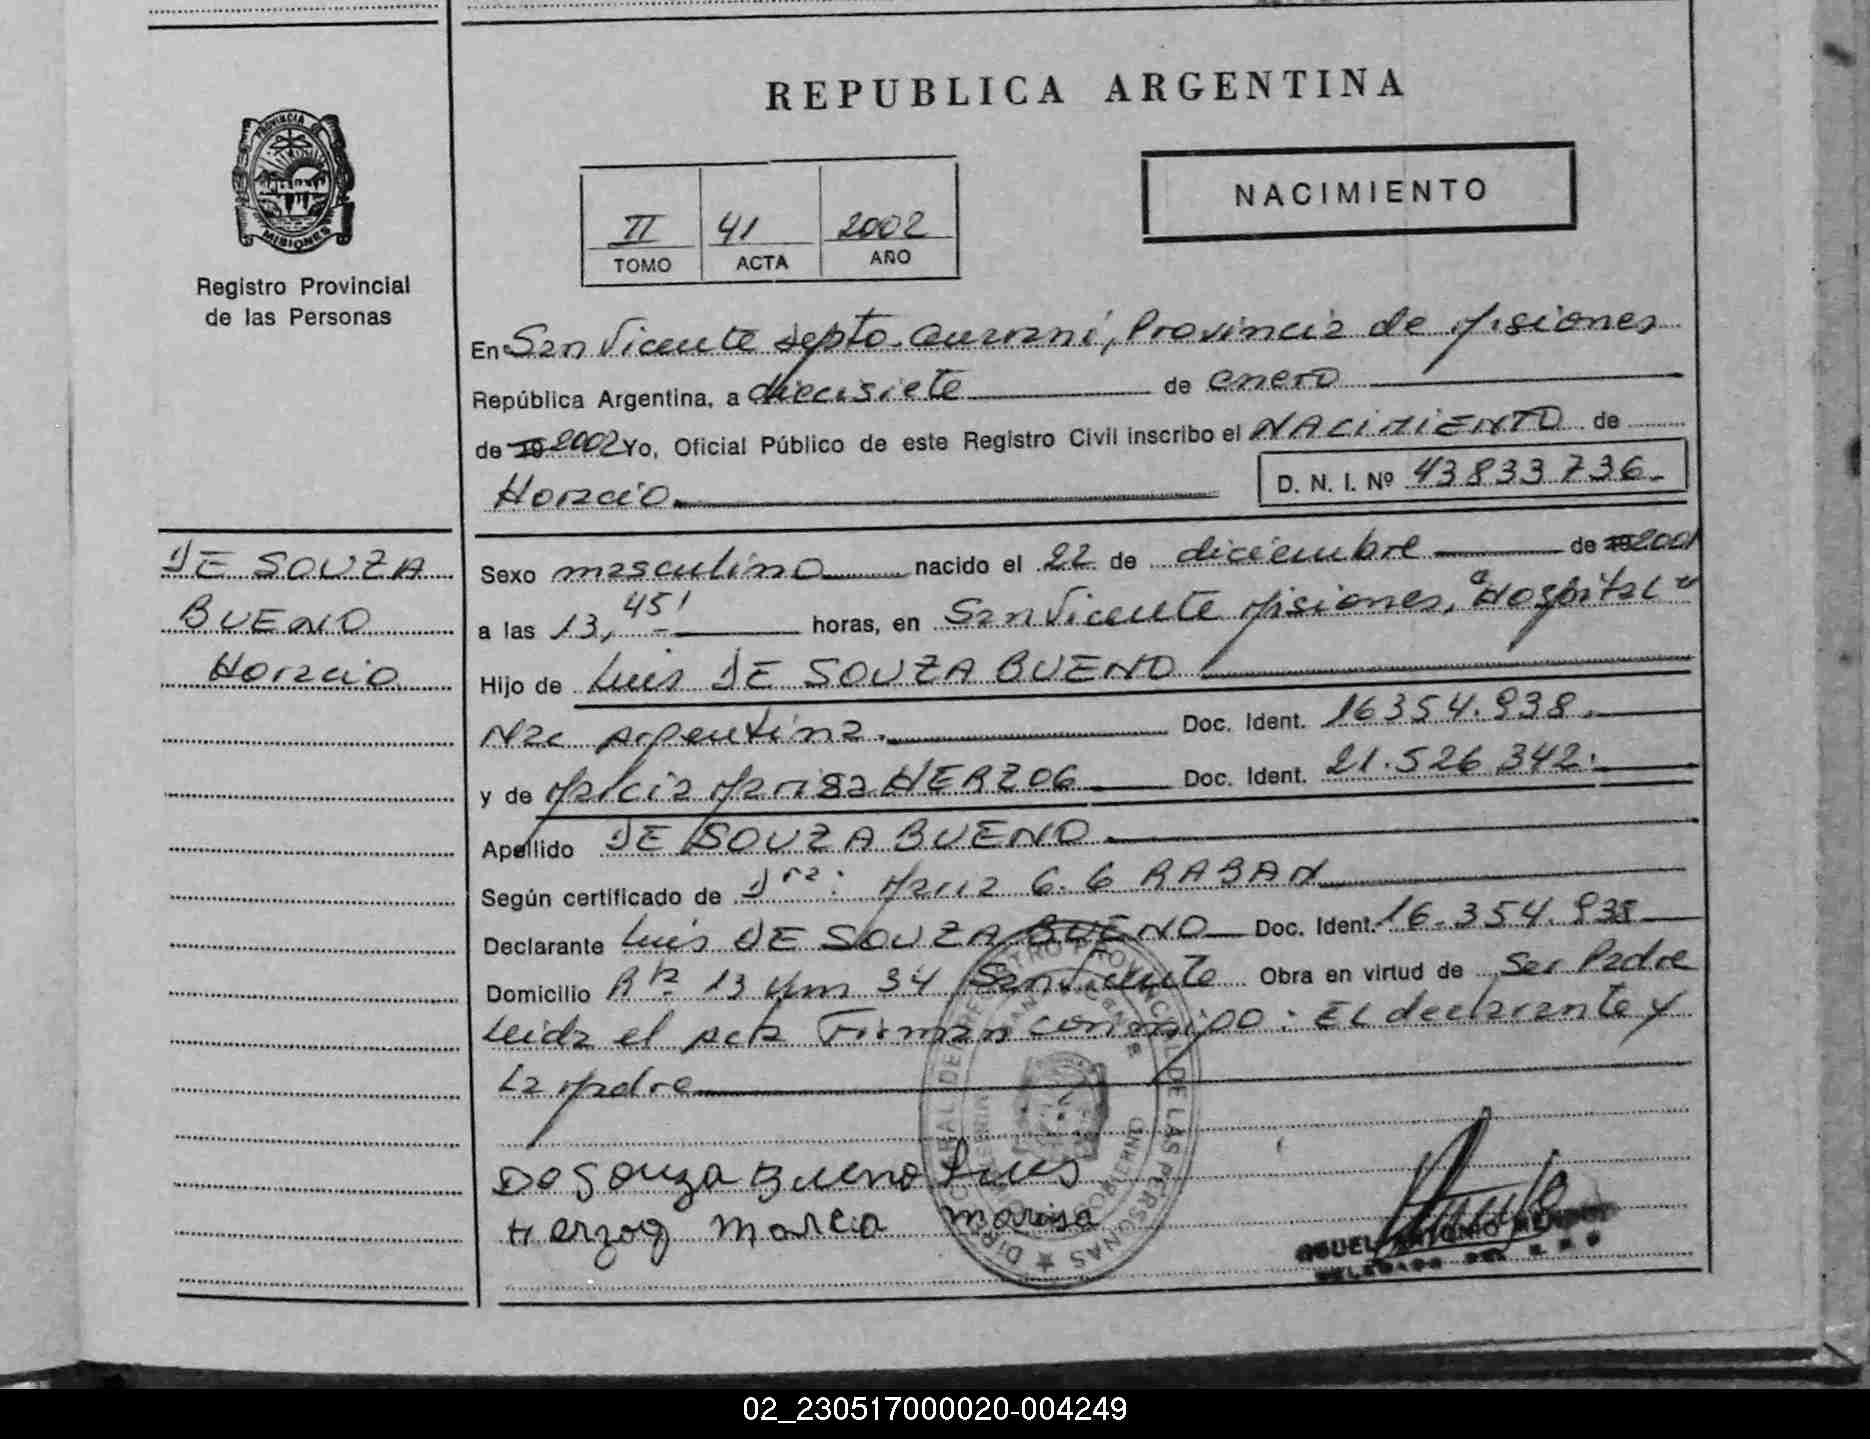 REPUBLICA ARGENTINA
PROVINCIA DE
MISIONES
Registro Provincial
de las Personas
NACIMIENTO
II 41 2002
TOMO ACTA AÑO
En San Vicente Depto. Guaraní, Provincia de Misiones
República Argentina, a diecisiete de enero
de 19 2002 Yo, Oficial Público de este Registro Civil inscribo el NACIMIENTO de
Horacio D. N. I. Nº 43833736.
DE SOUZA
BUENO
Horacio
Sexo masculino nacido el 22 de diciembre de 19 2001
a las 13,45' horas, en San Vicente Misiones, "Hospital"
Hijo de Luis DE SOUZA BUENO
Nac Argentina. Doc. Ident. 16354.938.
y de Marcia Marisa HERZOG Doc. Ident. 21.526.342.
Apellido DE SOUZA BUENO
Según certificado de Dra: G. G RABAN
Declarante Luis DE SOUZA BUENO Doc. Ident. 16.354.938
Domicilio Rta 13 Km 34 San Vicente Obra en virtud de Ser Padre
Leida el acta Firman conmigo: El declarante y
La Madre
De Souza Bueno Luis
Herzog Marcia Marisa
ANTONIO
02_230517000020-004249